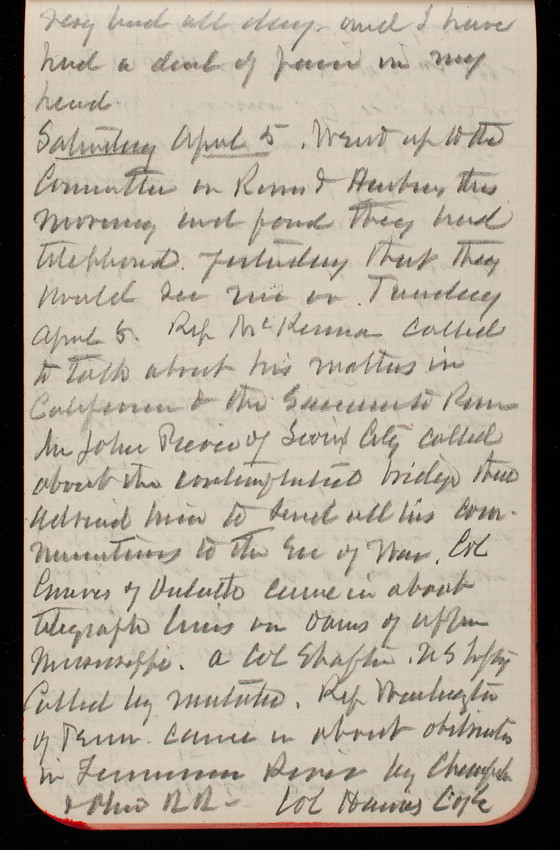 very bad all day. and I have
had a deal of pain in my
head.
Saturday April 5. Went up to the
Committee on Rivers & Harbors this
morning and found they had
telephoned yesterday that they
would see me on Tuesday
April 8. Rep McKenna called
to talk about his matters in
California & the Sacramento River
Mr John Pierce of Sioux City called
about the contemplated bridge there
Advised him to send all his com-
munications to the Sec of War. Col
Graves of Duluth came in about
telegraph lines on dams of upper
Mississippi. A Col Shafter. US Infty
Called by mistake. Rep Washington
of Tenn. came in about obstructions
in Tennessee River by
& Ohio RR - Col Hawkes